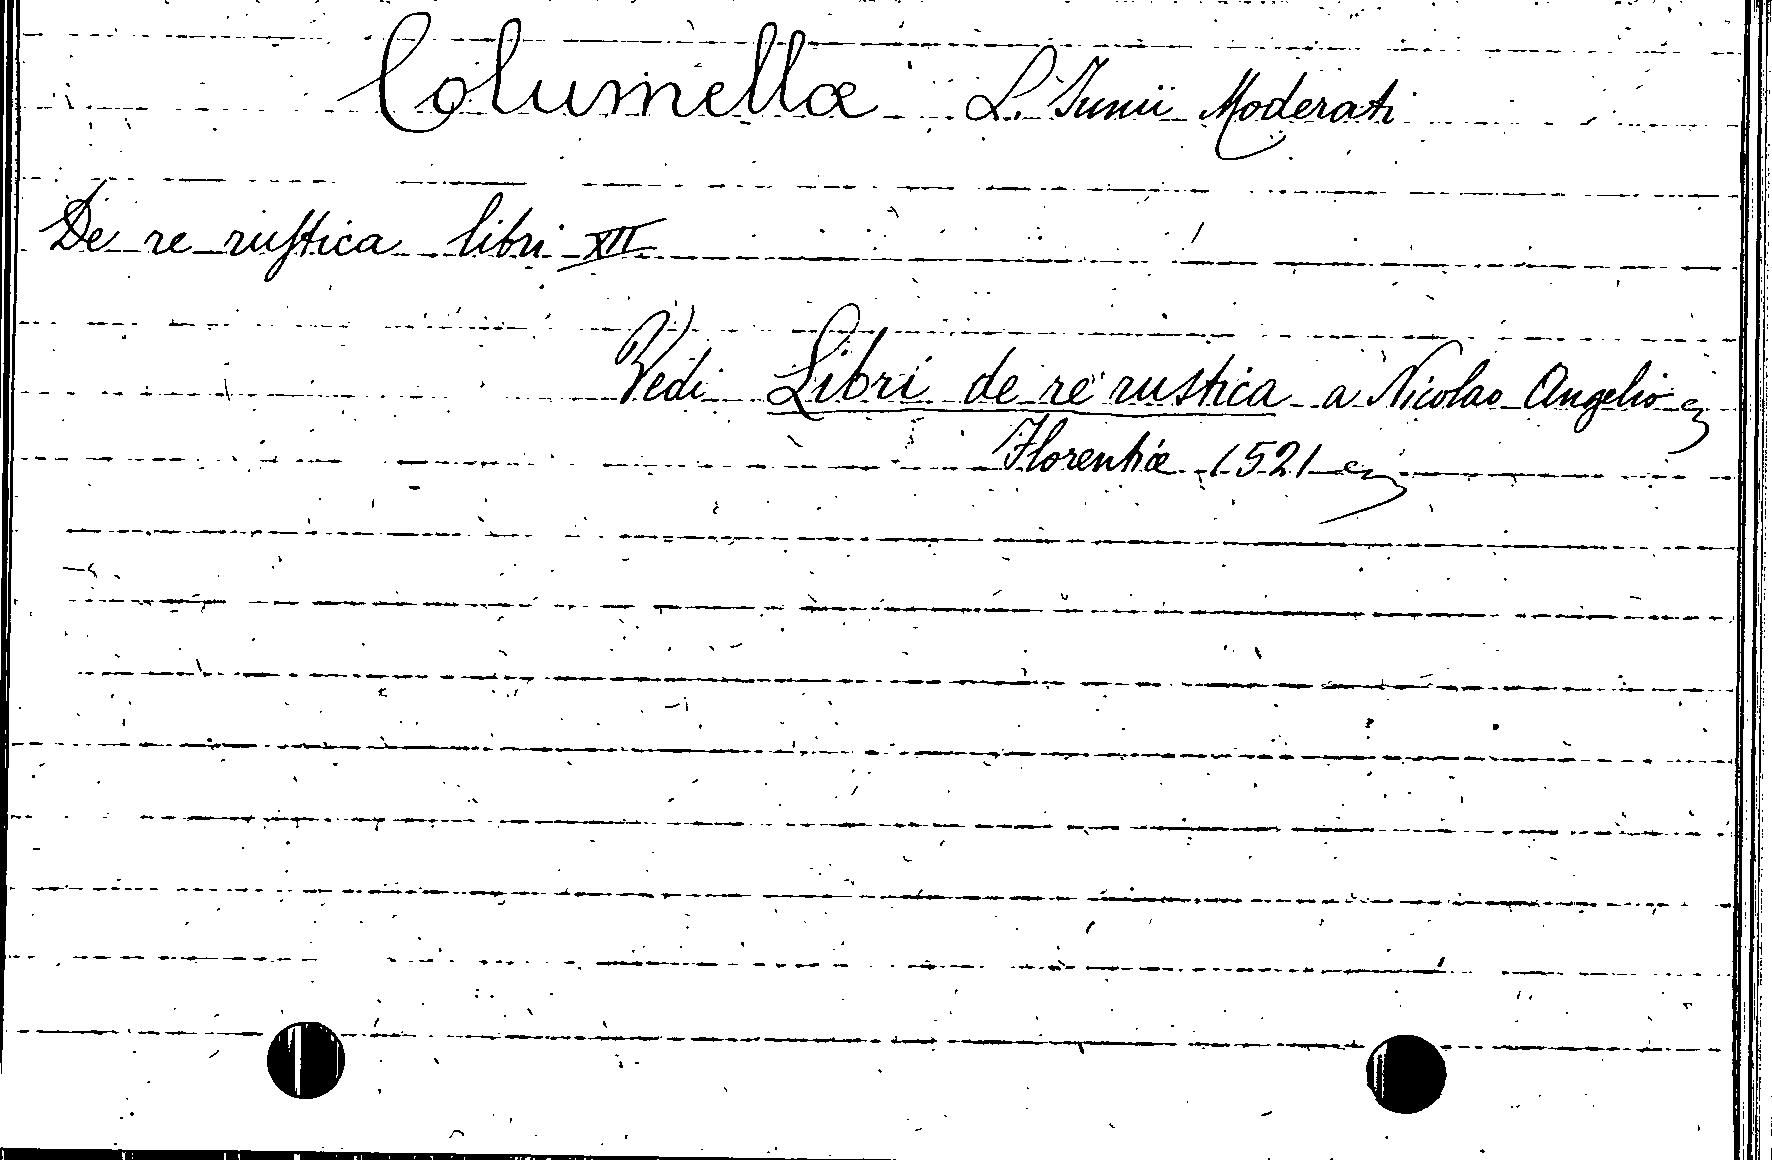 Columellæ L. Junii Moderati
De re ruſtica libri XII
Vedi Libri de re rustica a Nicolao Angelio
Florentiæ 1521